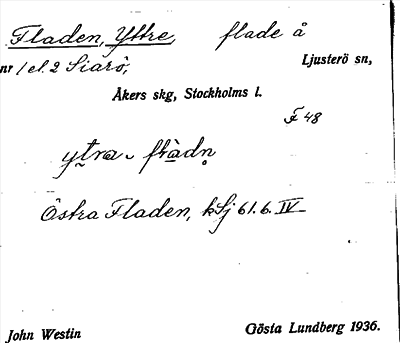 Fladen, Yttre, flade å
nr 1 el. 2 Siarö, Ljusterö sn,
Åkers skg, Stockholms l.
F 48
Östra Fladen, kSj 61.6.IV
John Westin Gösta Lundberg 1936.